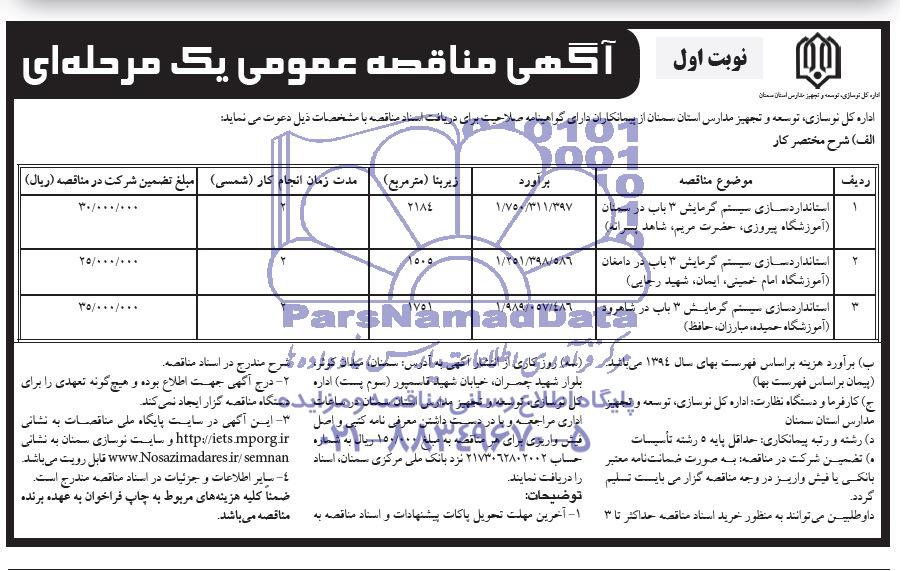 آگهی مناقصه عمومی یک مرحله‌ای
نوبت اول
اداره کل نوسازی، توسعه و تجهیز مدارس استان سمنان
اداره کل نوسازی، توسعه و تجهیز مدارس استان سمنان از پیمانکاران دارای گواهینامه صلاحیت برای دریافت اسناد مناقصه با مشخصات ذیل دعوت می نماید:
الف) شرح مختصر کار
ردیف موضوع مناقصه برآورد زیربنا (مترمربع) مدت زمان انجام کار (شمسی) مبلغ تضمین شرکت در مناقصه (ریال)
۱ استانداردسـازی سیستم گرمایش ۳ باب در سمنان ۱/۷۵۰/۳۱۱/۳۹۷ ۲۱۸۴ ۲ ۳۰/۰۰۰/۰۰۰
(آموزشگاه پیروزی، حضرت مریم، شاهد پسرانه)
۲ استانداردسـازی سیستم گرمایش ۳ باب در دامغان ۱/۲۵۱/۳۹۸/۵۸۶ ۱۵۰۵ ۲ ۲۵/۰۰۰/۰۰۰
(آموزشگاه امام خمینی، ایمان، شهید رجایی)
۳ استانداردسازی سیستم گرمایـش ۳ باب در شاهرود ۱/۹۸۹/۰۵۷/۴۸۶ ۱۷۵۱ ۲ ۳۵/۰۰۰/۰۰۰
(آموزشگاه حمیده، مبارزان، حافظ)
ب) برآورد هزینه براساس فهرست بهای سال ۱۳۹۴ می‌باشد.
(پیمان براساس فهرست بها)
ج) کارفرما و دستگاه نظارت: اداره کل نوسازی، توسعه و تجهیز
مدارس استان سمنان
د) رشته و رتبه پیمانکاری: حداقل پایه ۵ رشته تأسیسات
ه) تضمیـن شرکت در مناقصه: بـه صورت ضمانت‌نامه معتبر
بانکـی یا فیش واریـز در وجه مناقصه گزار می بایست تسلیم
گردد.
داوطلبیـن می‌توانند به منظور خرید اسناد مناقصه حداکثر تا ۳
(سه) روز کاری از انتشار آگهی به آدرس: سمنان، میدان کوثر،
بلوار شهید چمـران، خیابان شهید قاسمپور (سوم پست) اداره
کل نوسازی، توسعه و تجهیز مدارس استان سمنان در ساعات
اداری مراجعـه و با در دست داشتن معرفی نامه کتبی و اصل
فیش واریزی برای هر مناقصه به مبلغ ۱۵۰/۰۰۰ ریال به شماره
حساب ۲۱۷۳۰۶۲۸۰۲۰۰۲ نزد بانک ملی مرکزی سمنان، اسناد
را دریافت نمایند.
توضیحات:
۱- آخرین مهلت تحویل پاکات پیشنهادات و اسناد مناقصه به
شرح مندرج در اسناد مناقصه.
۲- درج آگهی جهـت اطلاع بوده و هیچ‌گونه تعهدی را برای
دستگاه مناقصه گزار ایجاد نمی‌کند.
۳- ایـن آگهی در سایـت پایگاه ملی مناقصـات به نشانی
http://iets.mporg.ir و سایت نوسازی سمنان به نشانی
www.Nosazimadares.ir/ semnan قابل رویت می‌باشد.
۴- سایر اطلاعات و جزئیات در اسناد مناقصه مندرج است.
ضمنا کلیه هزینه‌های مربوط به چاپ فراخوان به عهده برنده
مناقصه می‌باشد.
ParsNamadData
پایگاه اطلاع رسانی مناقصه و مزایده